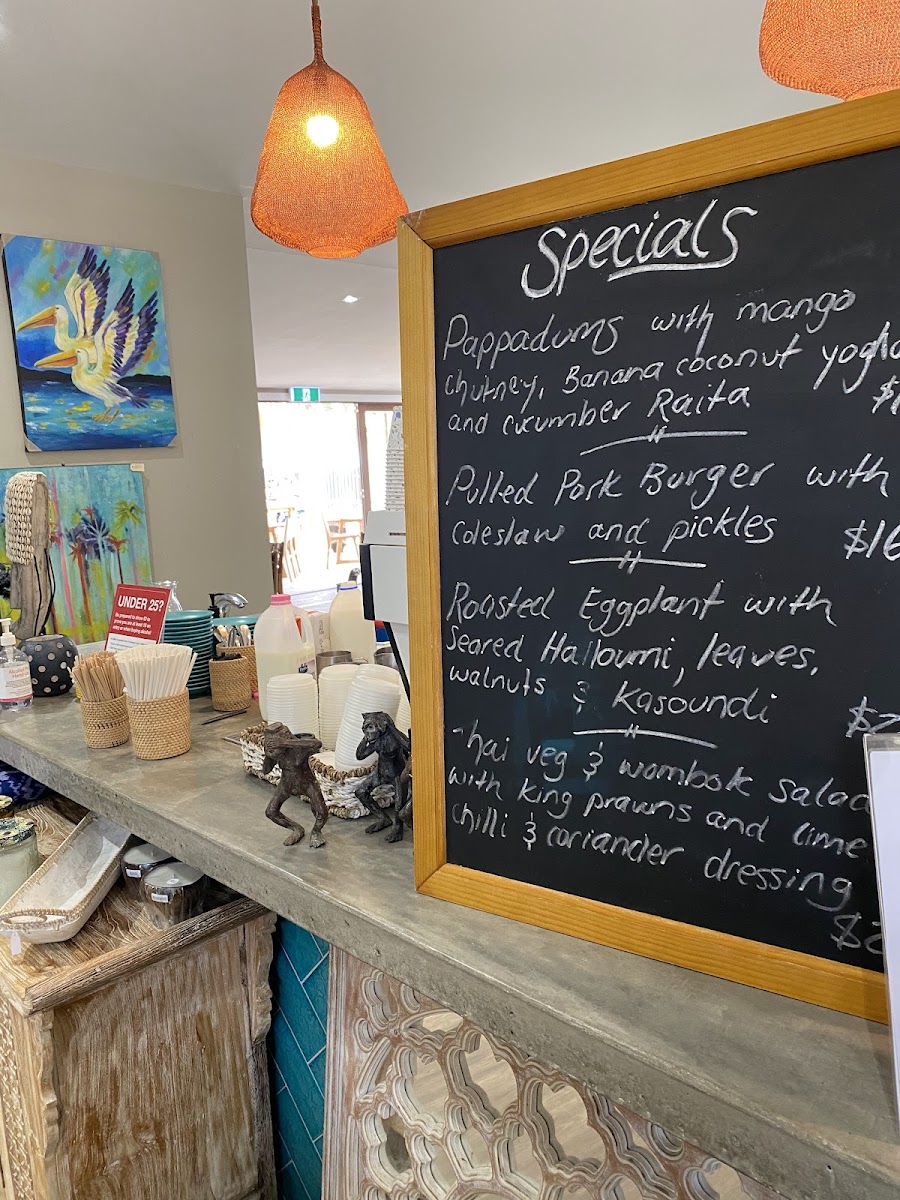 Specials
Pappadums with mango
chutney, Banana coconut yogh
and cucumber Raita $1
Pulled Pork Burger with
Coleslaw and pickles $16
Roasted Eggplant with
Seared Halloumi, leaves,
walnuts & Kasoundi $2
hai veg & wombok Salad
with king prawns and lime
chilli & coriander dressing
$2
UNDER 25?